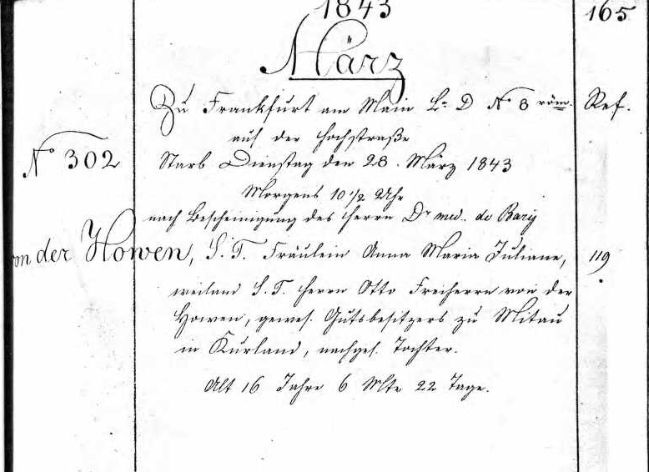 1843
165
März
Zu Frankfurt am Main Lr. D No 8 röm. Ref.
auf der Hochstraße
No 302
Starb Dienstag den 28. März 1843
Morgens 10 1/2 Uhr
nach Bescheinigung des Herrn Dr med. de Bary
von der Howen, S. T. Fräulein Anna Maria Juliane, 119
weiland S. T. Herrn Otto Freiherrn von der
Howen, gewes. Gutsbesitzers zu Mitau
in Kurland, nachgel. Tochter.
Alt 16 Jahre 6 Mte 22 Tage.